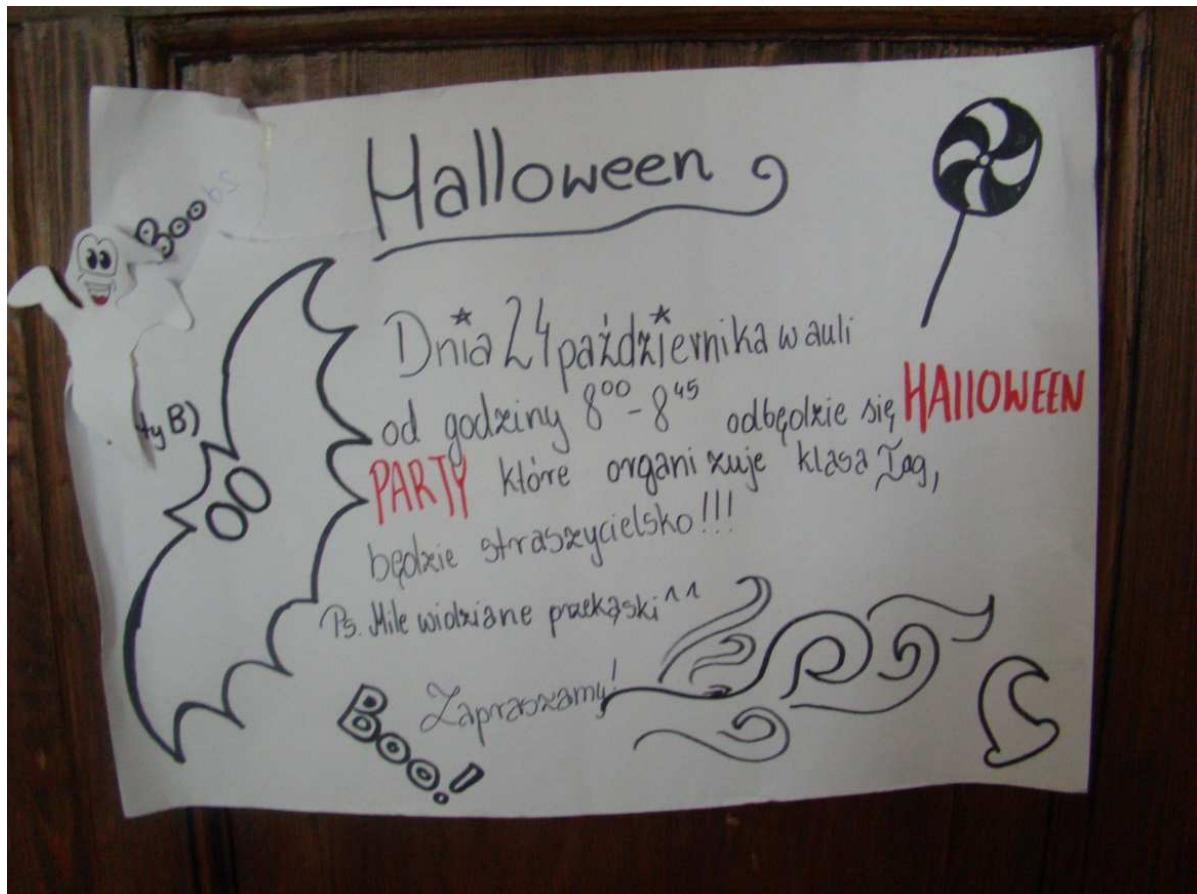 Halloween
Boobs
Dnia 24 października w auli
od godziny 8⁰⁰-8⁴⁵ odbędzie się HALLOWEEN
PARTY które organizuje klasa Iag,
będzie straszycielsko!!!
Ps. Mile widziane przekąski^^
Zapraszamy!
Boo!
ty B)